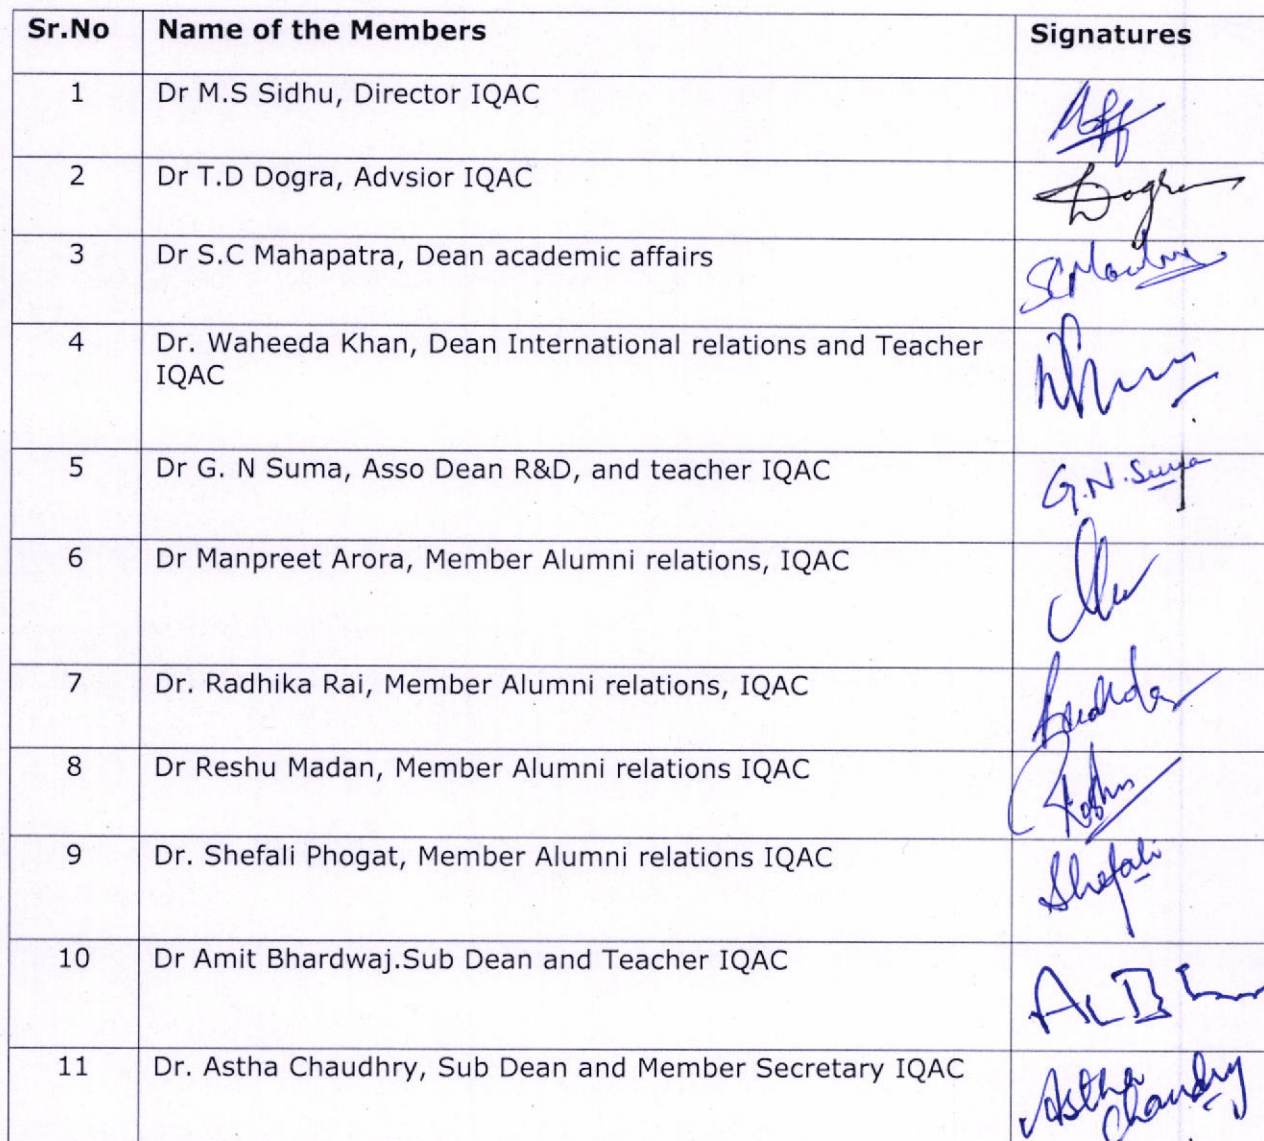 Sr.No Name of the Members Signatures
1 Dr M.S Sidhu, Director IQAC
2 Dr T.D Dogra, Advsior IQAC Dogra
3 Dr S.C Mahapatra, Dean academic affairs
4 Dr. Waheeda Khan, Dean International relations and Teacher
IQAC
5 Dr G. N Suma, Asso Dean R&D, and teacher IQAC G.N.Suma
6 Dr Manpreet Arora, Member Alumni relations, IQAC
7 Dr. Radhika Rai, Member Alumni relations, IQAC
8 Dr Reshu Madan, Member Alumni relations IQAC
9 Dr. Shefali Phogat, Member Alumni relations IQAC Shefali
10 Dr Amit Bhardwaj.Sub Dean and Teacher IQAC
11 Dr. Astha Chaudhry, Sub Dean and Member Secretary IQAC Astha
Chaudhry